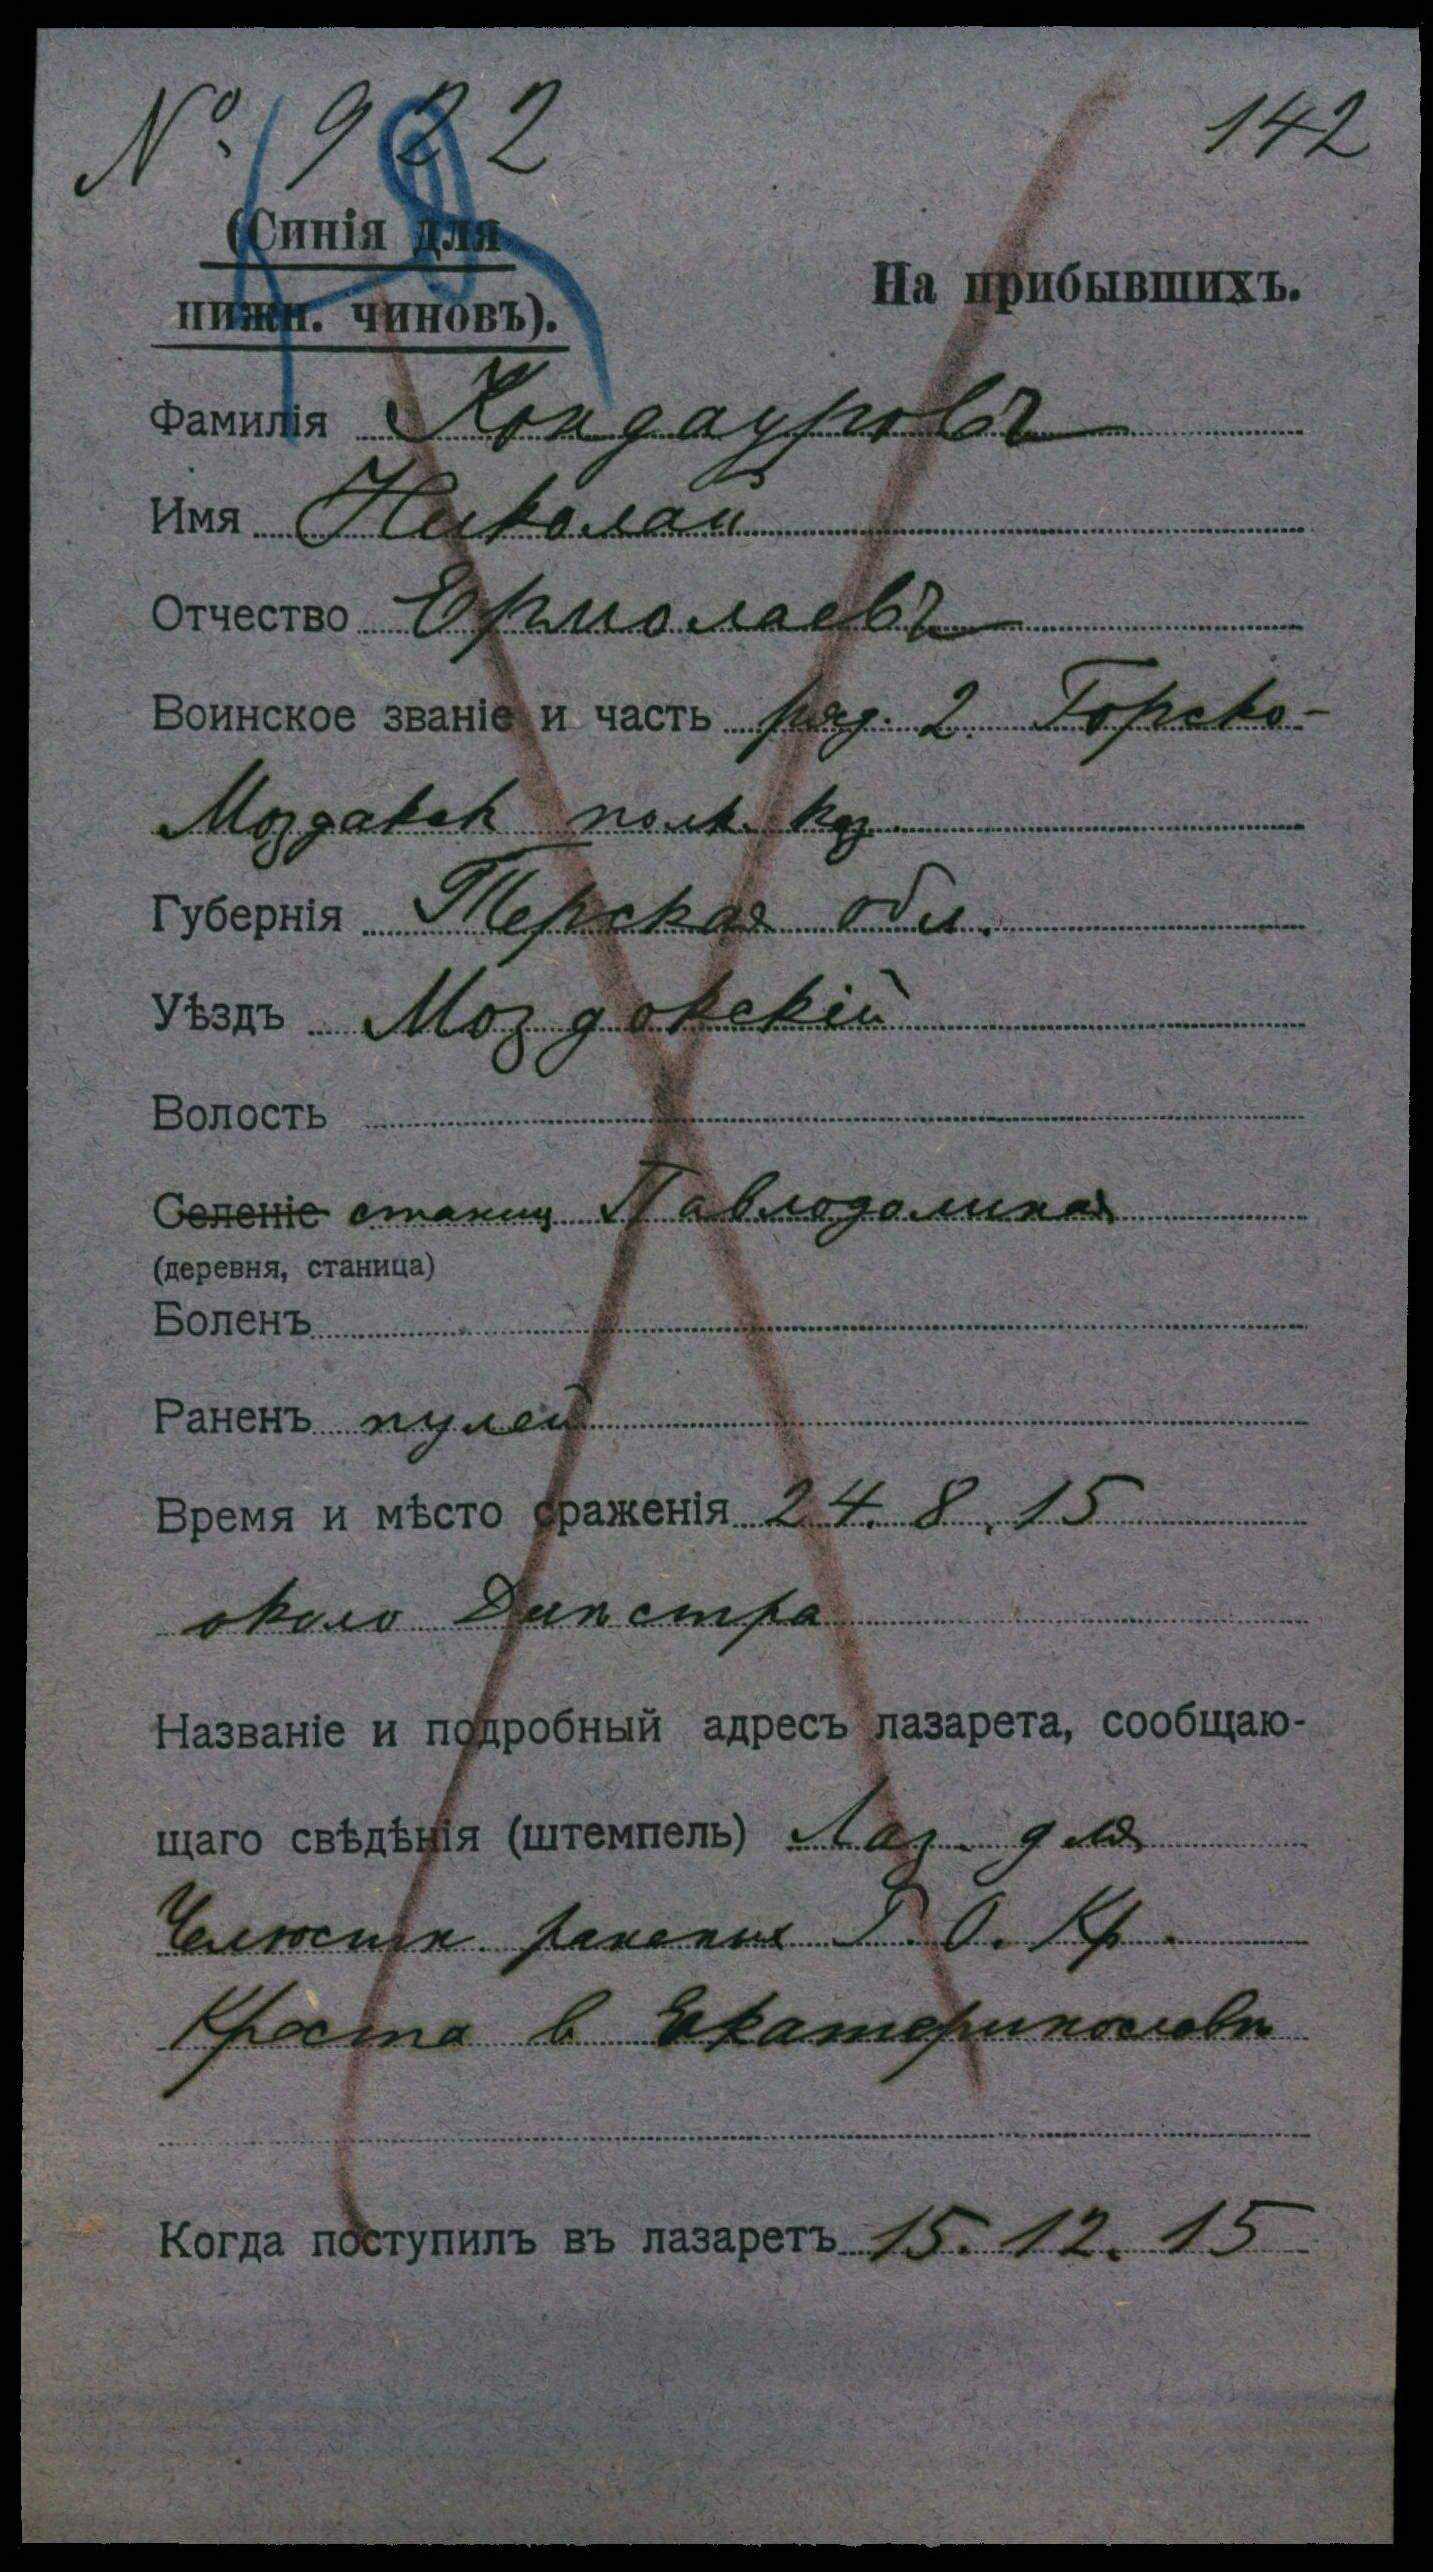 № 922
142
(Синія для
нижн. чиновъ).
На прибывшихъ.
Фамилія Кондауровъ
Имя Николай
Отчество Ермолаевъ
Воинское званіе и часть ряд. 2 Горско-
Моздакск полк. каз.
Губернія Терская обл.
Уѣздъ Моздокскій
Волость
Селеніе станиц Павлодолиная
(деревня, станица)
Боленъ
Раненъ пулей
Время и мѣсто сраженія 24. 8. 15
около Днѣстра
Названіе и подробный адресъ лазарета, сообщаю-
щаго свѣдѣнія (штемпель) Лаз. для
Челюстн. раненых Г. О. Кр.
Креста в Екатеринославѣ
Когда поступилъ въ лазаретъ 15. 12. 15